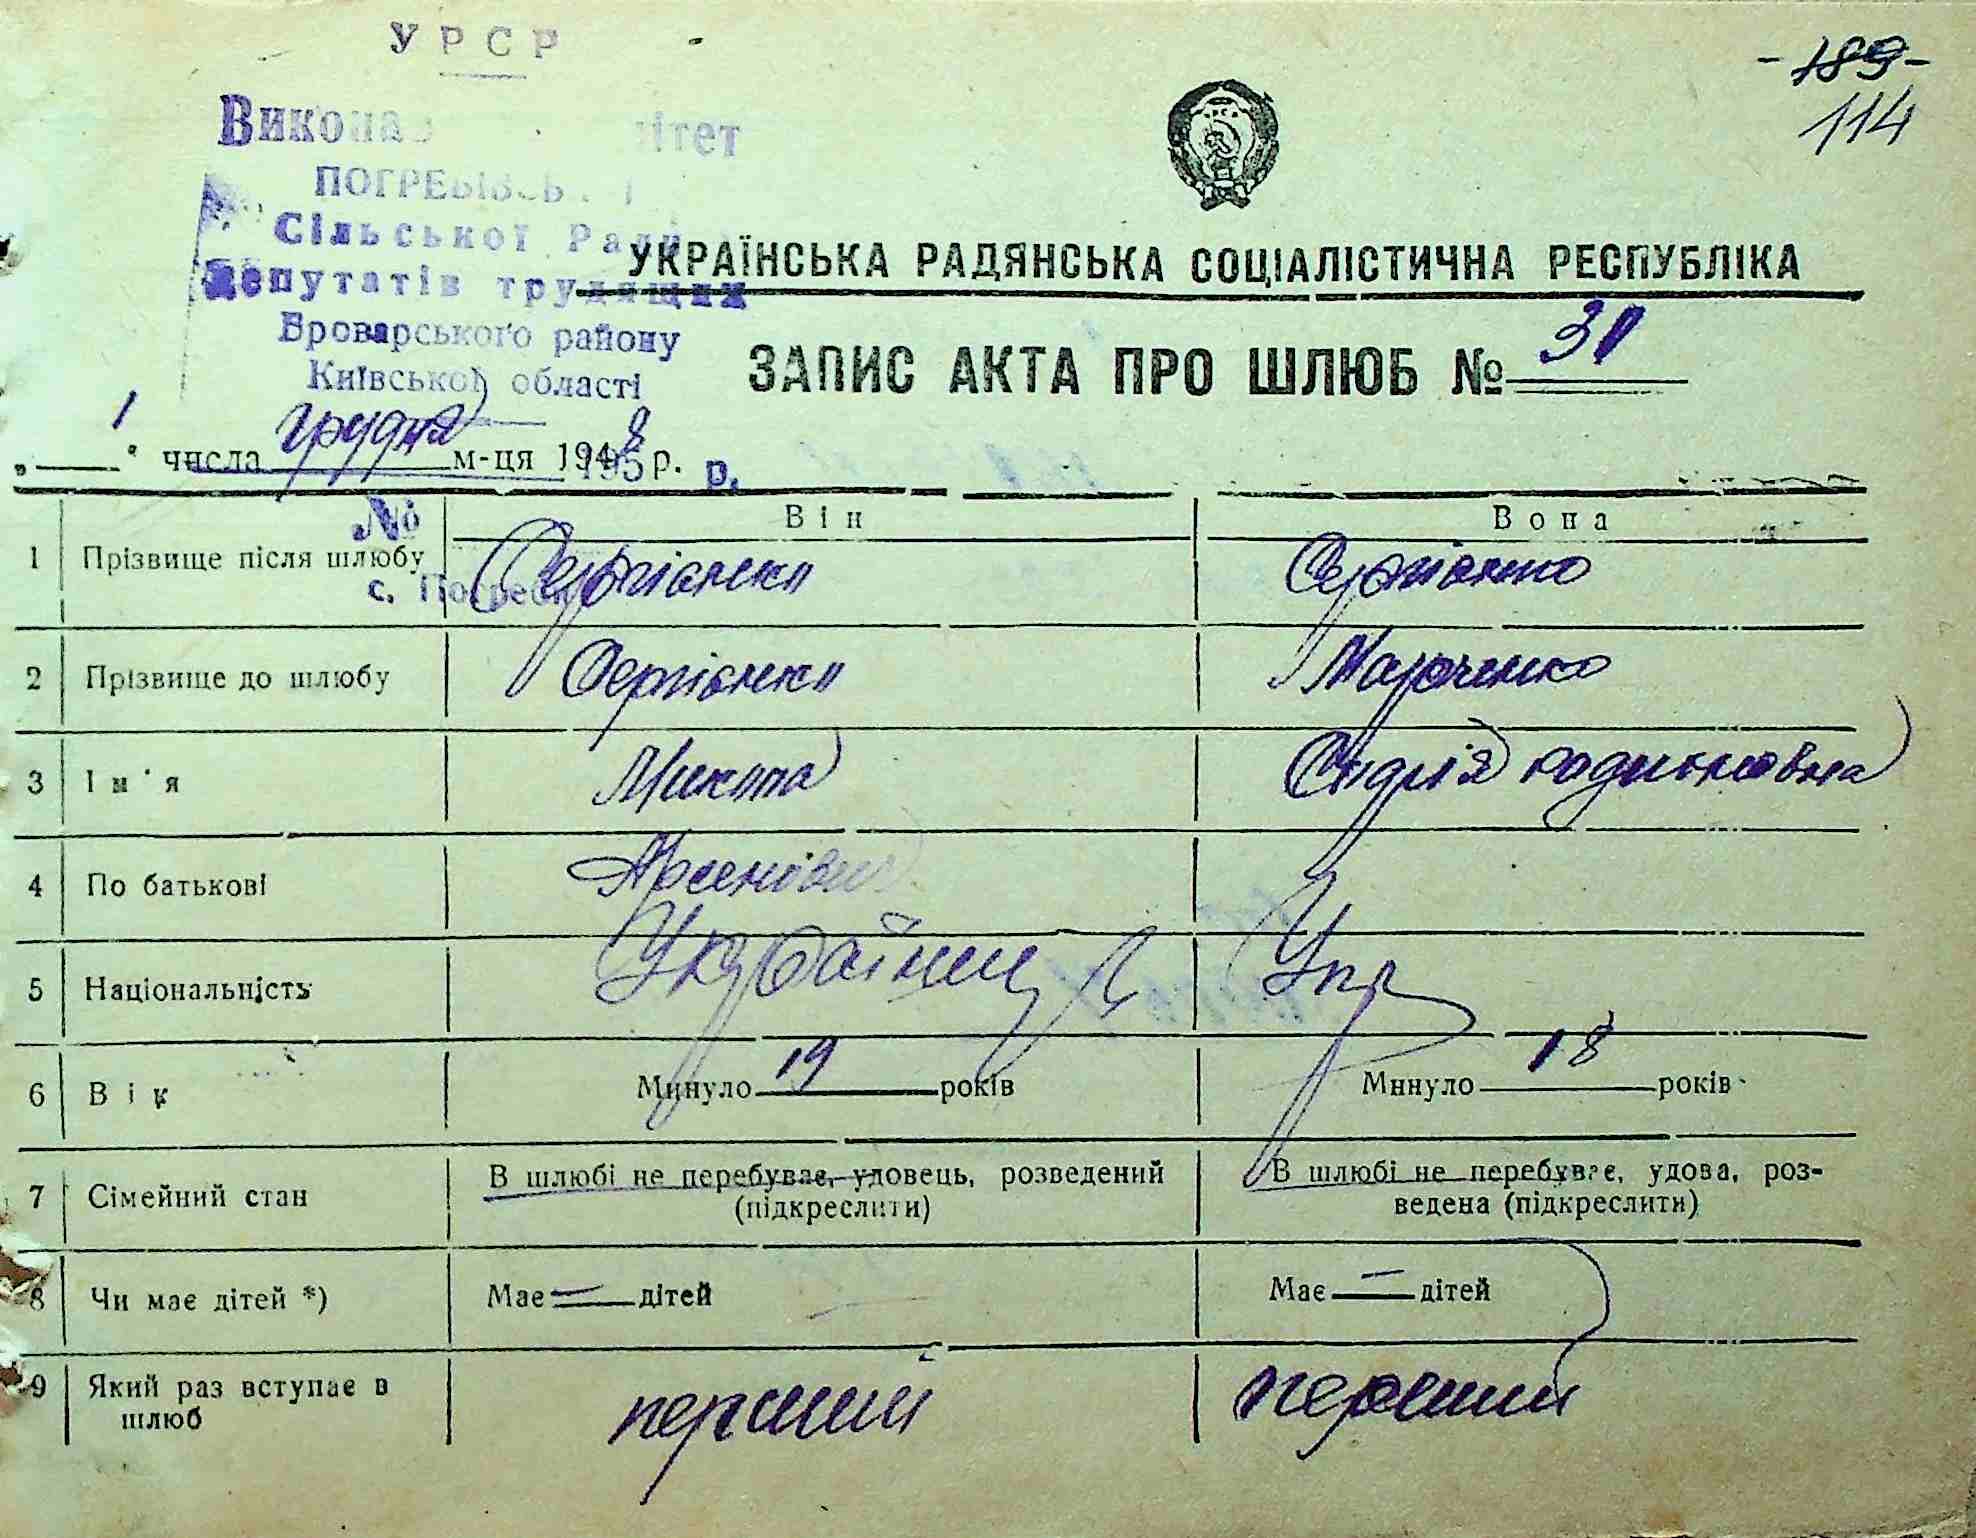 УРСР
-189-
114
ітет
Сільської Ради
Депутатів трудящих
Броварського району
Київської області
УКРАЇНСЬКА РАДЯНСЬКА СОЦІАЛІСТИЧНА РЕСПУБЛІКА
ЗАПИС АКТА ПРО ШЛЮБ №
„ 1 " числа грудня м-ця 1948 р. р.
№
Він Вона
1 Прізвище після шлюбу
с.
2 Прізвище до шлюбу Марченко
3 Ім'я Микола
4 По батькові Арсенович
5 Національність Українець Укр
6 Вік Минуло 19 років Минуло 18 років
7 Сімейний стан В шлюбі не перебуває, удовець, розведений (підкреслити) В шлюбі не перебуває, удова, роз-
ведена (підкреслити)
8 Чи має дітей *) Має — дітей Має — дітей
9 Який раз вступає в шлюб перший перший